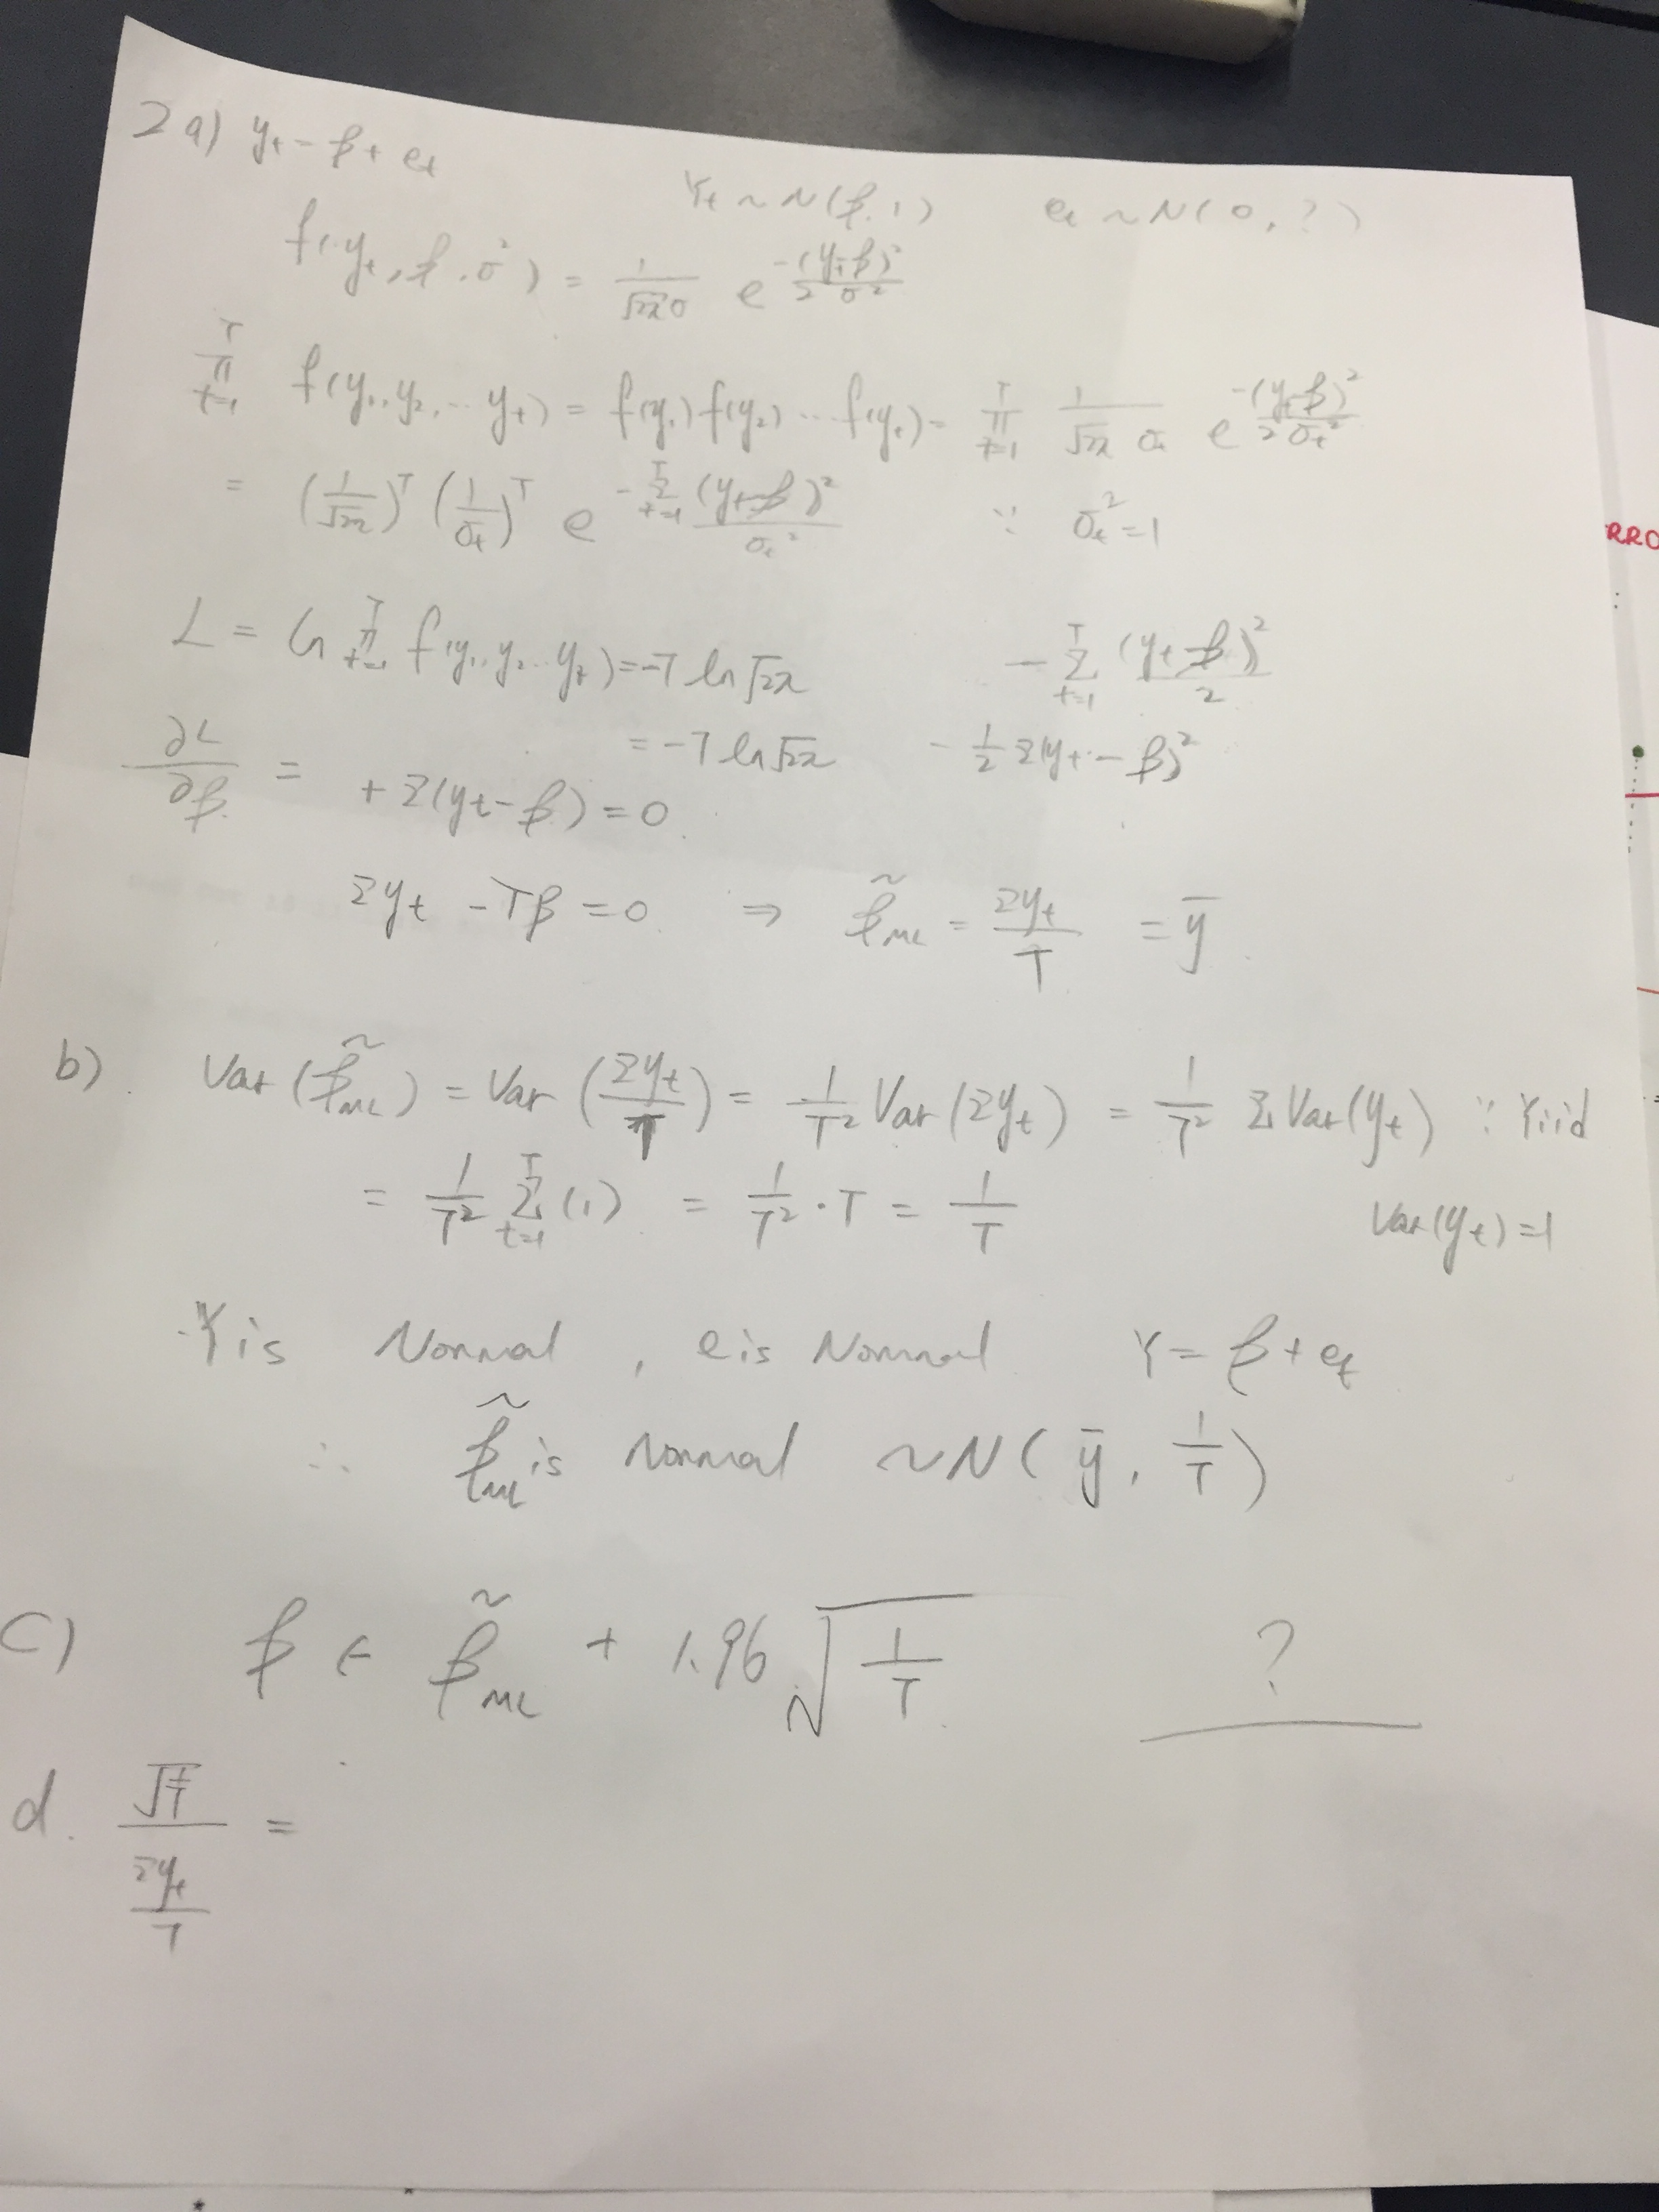 2a) yₜ = β + eₜ
Yₜ ~ N(β, 1) eₜ ~ N(0, ?)
f(yₜ, β, σ²) = 1/(√2π σ) e^(-(yₜ-β)²/2σ²)
∏ₜ₌₁ᵀ f(y₁, y₂, ... yₜ) = f(y₁) f(y₂) ... f(yₜ) = ∏ₜ₌₁ᵀ 1/(√2π σₜ) e^(-(yₜ-β)²/2σₜ²)
= (1/√2π)ᵀ (1/σₜ)ᵀ e^(-Σₜ₌₁ᵀ (yₜ-β)²/σₜ²) ∵ σₜ² = 1
L = ln ∏ₜ₌₁ᵀ f(y₁, y₂ .. yₜ) = -T ln √2π - Σₜ₌₁ᵀ (yₜ-β)²/2
= -T ln √2π - 1/2 Σ(yₜ - β)²
∂L/∂β = + Σ(yₜ - β) = 0
Σyₜ - Tβ = 0 ⇒ β̃ML = Σyₜ/T = ȳ
b). Var(β̃ML) = Var(Σyₜ/T) = 1/T² Var(Σyₜ) = 1/T² Σ Var(yₜ) ∵ Y iid
= 1/T² Σₜ₌₁ᵀ (1) = 1/T² · T = 1/T Var(yₜ) = 1
Y is Normal, e is Normal Y = β + eₜ
∴ β̃ML is Normal ~ N(ȳ, 1/T)
C) β ∈ β̃ML + 1.96 √(1/T) ?
d. √(1/T) / (Σyₜ/T) =
RRO